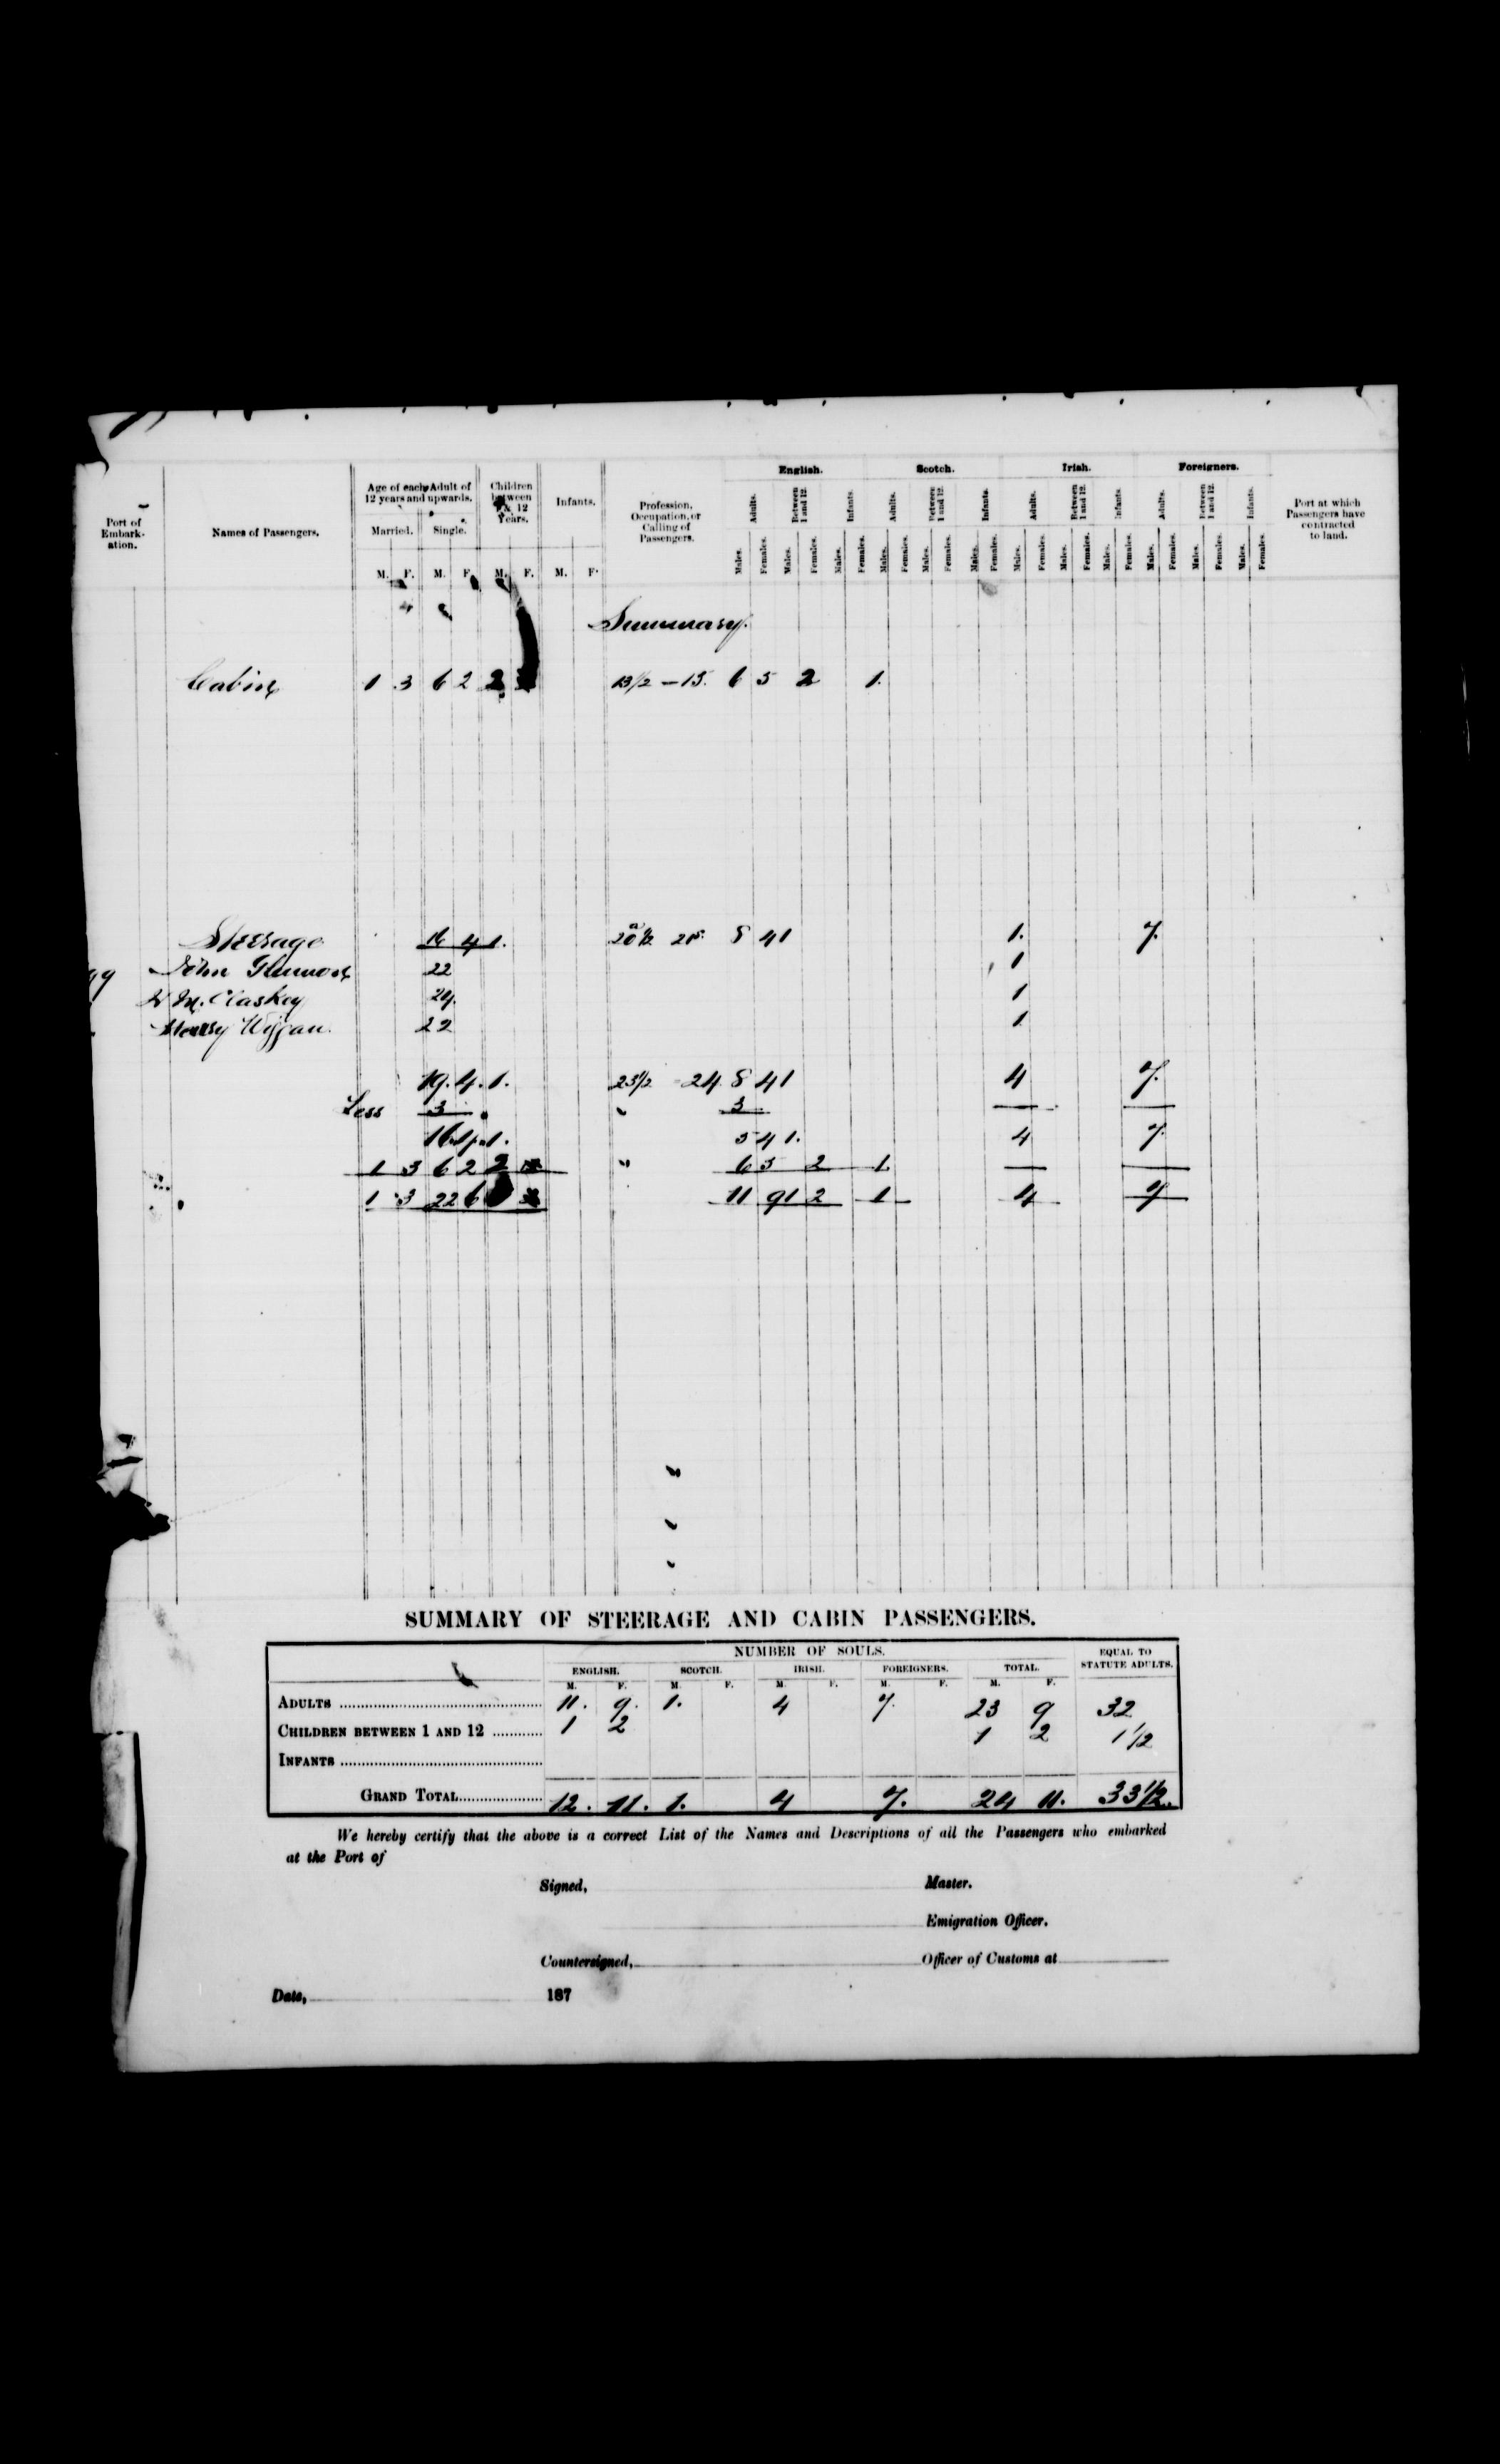 English. Scotch. Irish. Foreigners.
Port of Embark- ation. Names of Passengers. Age of each Adult of 12 years and upwards. Children between 1 & 12 Years. Infants. Profession, Occupation, or Calling of Passengers. Adults. Between 1 and 12. Infants. Adults. Between 1 and 12. Infants. Adults. Between 1 and 12. Infants. Adults. Between 1 and 12. Infants. Port at which Passengers have contracted to land.
Married. Single.
M. F. M. F. M. F. M. F. Males. Females. Males. Females. Males. Females. Males. Females. Males. Females. Males. Females. Males. Females. Males. Females. Males. Females. Males. Females. Males. Females. Males. Females.
Summary.
Cabin 1 3 6 2 2 13 1/2 - 15. 6 5 2 1.
Steerage 16 4 1. 20 1/2 21 8 4 1 1. 7.
John 22 1
McClaskey 24. 1
Henry 22 1
19. 4. 1. 23 1/2 24 8 4 1 4 7.
Less 3 " 3
16 4 1. 5 4 1. 4 7
1 3 6 2 2 " 6 5 2 1.
1 3 22 6 11 9 1 2 1 4 7
SUMMARY OF STEERAGE AND CABIN PASSENGERS.
NUMBER OF SOULS. EQUAL TO STATUTE ADULTS.
ENGLISH. SCOTCH. IRISH. FOREIGNERS. TOTAL.
M. F. M. F. M. F. M. F. M. F.
ADULTS 11. 9. 1. 4 7. 23 9 32
CHILDREN BETWEEN 1 AND 12 1 2 1 2 1 1/2
INFANTS
GRAND TOTAL 12. 11. 1. 4 7. 24 11. 33 1/2.
We hereby certify that the above is a correct List of the Names and Descriptions of all the Passengers who embarked
at the Port of
Signed, Master.
Emigration Officer.
Countersigned, Officer of Customs at
Date, 187